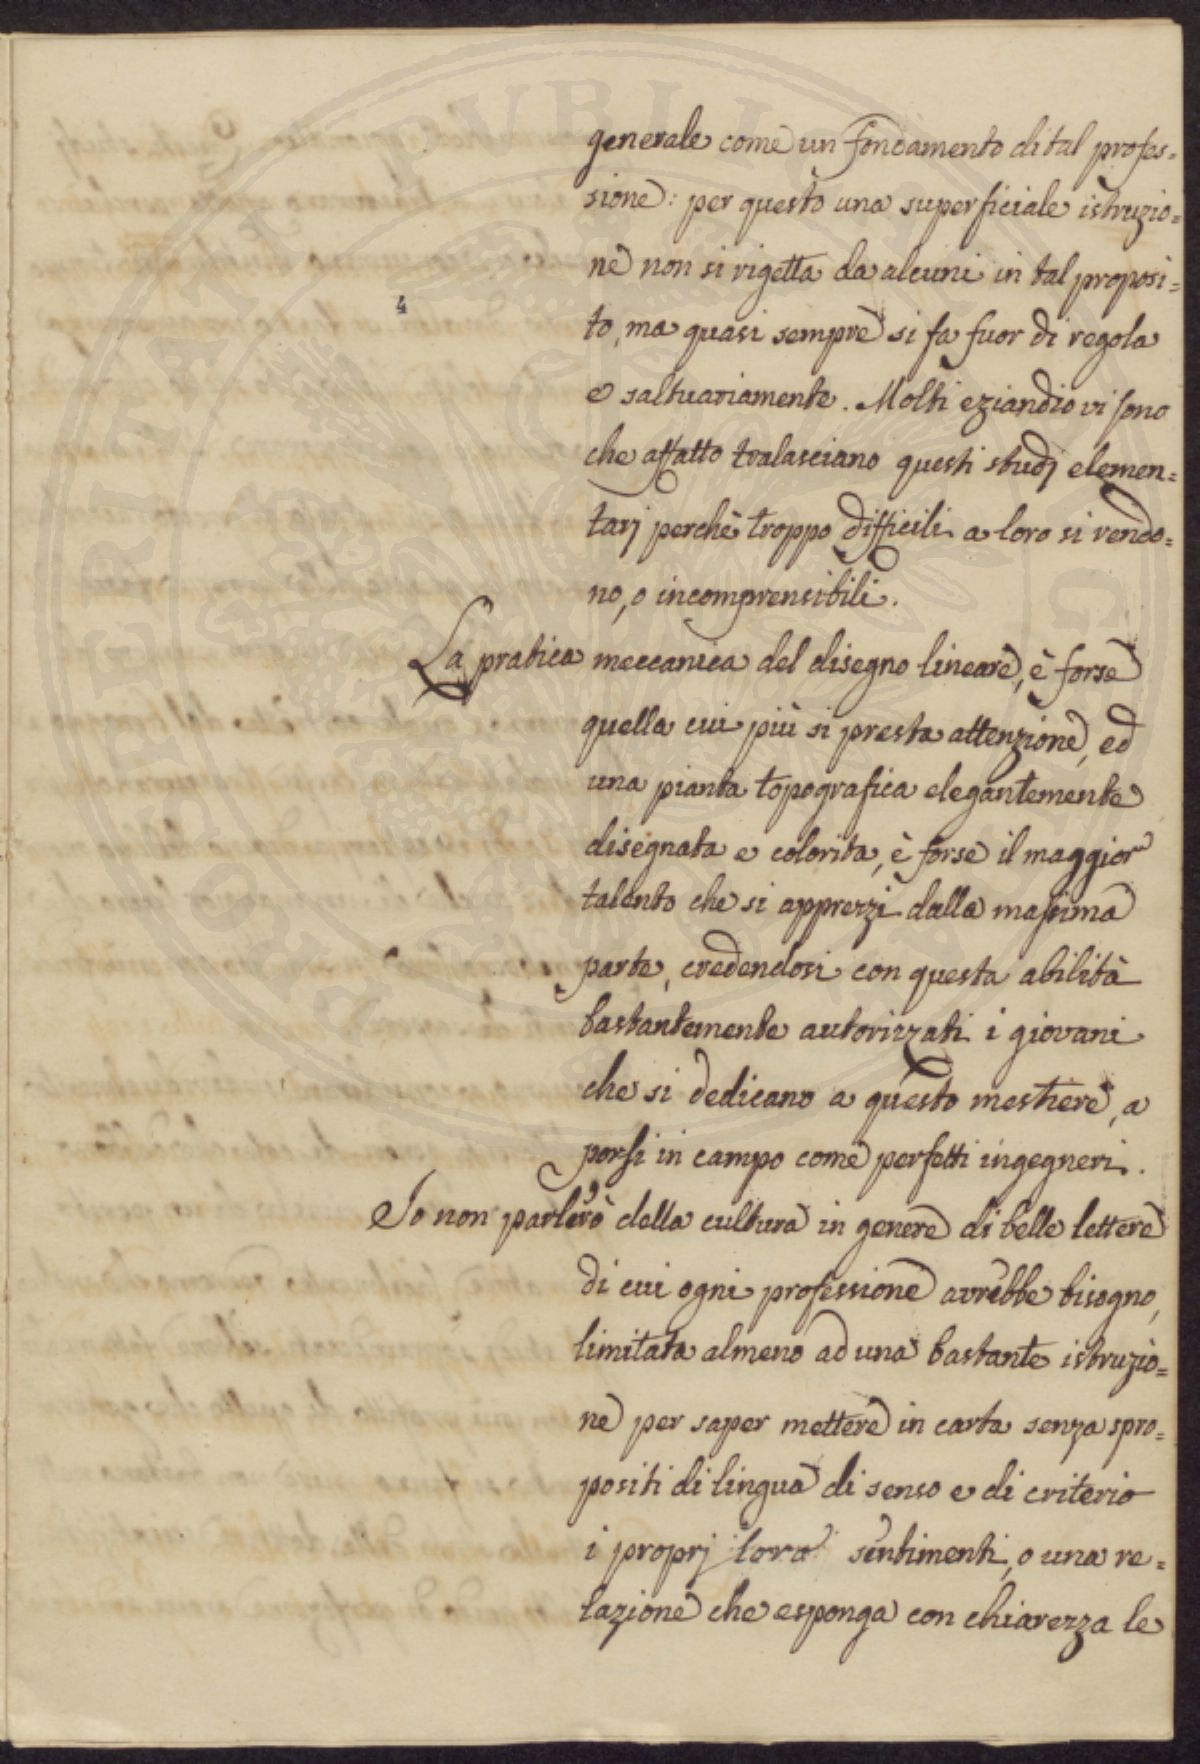 generale come un fondamento di tal profes=
sione: per questo una superficiale istruzio=
ne non si rigetta da alcuni in tal proposi=
4
to, ma quasi sempre si fa fuor di regola
e saltuariamente. Molti eziandio vi sono
che affatto tralasciano questi studj elemen=
tarj perchè troppo difficili a loro si rendo=
no, o incomprensibili.
La pratica meccanica del disegno lineare, è forse
quella cui più si presta attenzione, ed
una pianta topografica elegantemente
disegnata e colorita, è forse il maggior
talento che si apprezzi dalla massima
parte, credendosi con questa abilità
bastantemente autorizzati i giovani
che si dedicano a questo mestiere, a
porsi in campo come perfetti ingegneri.
Io non parlerò della cultura in genere di belle lettere
di cui ogni professione avrebbe bisogno,
limitata almeno ad una bastante istruzio=
ne per saper mettere in carta senza spro=
positi di lingua di senso e di criterio
i proprj loro sentimenti, o una re=
lazione che esponga con chiarezza le